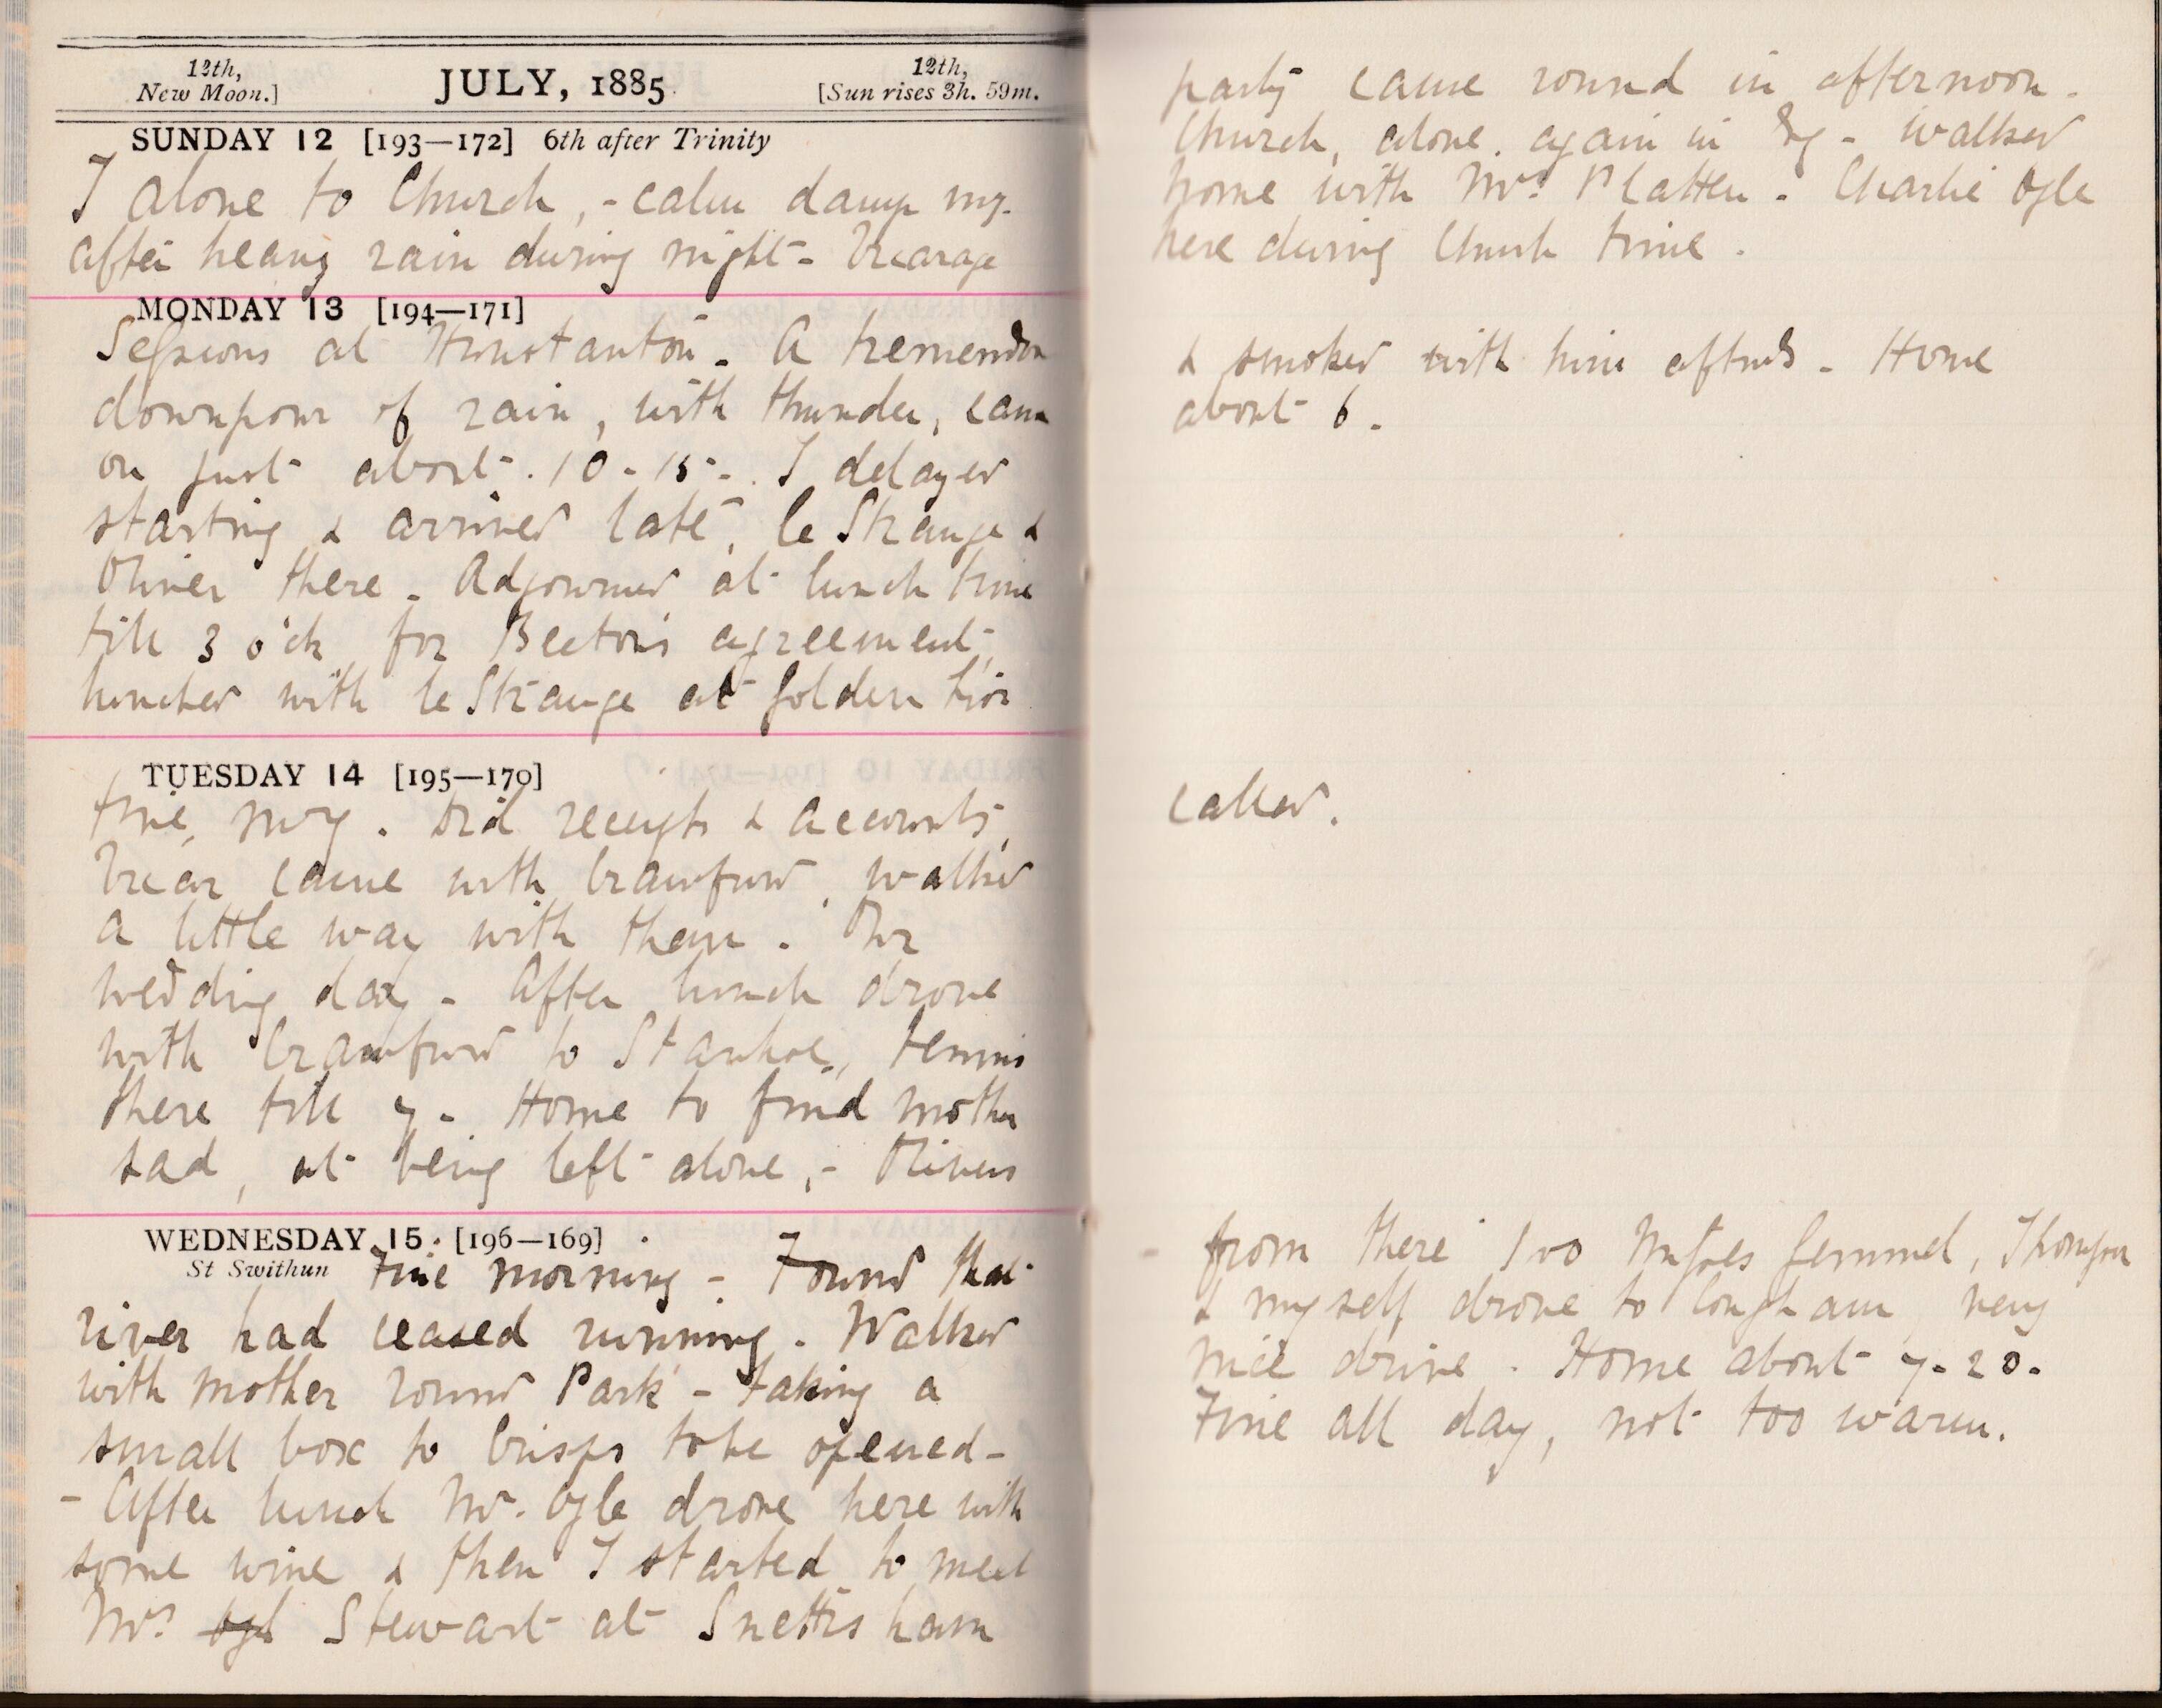 12th,
New Moon.]
JULY, 1885.
12th,
[Sun rises 3h. 59m.
SUNDAY 12 [193—172] 6th after Trinity
I alone to Church, - calm damp mg.
after heavy rain during night - Vicarage
party came round in afternoon -
Church, alone, again in Evg - Walked
home with Mrs Platten - Charlie Ogle
here during Church time.
MONDAY 13 [194—171]
Sessions at Hunstanton - A tremendous
downpour of rain, with thunder, came
on just about 10-15 - I delayed
starting & arrived late, le Strange &
Oliver there - Adjourned at lunch time
till 3 o'ck for Beeton's agreement,
lunched with le Strange at Golden Lion
& smoked with him aftwds - Home
about 6.
TUESDAY 14 [195—170]
Fine, mg. Did receipts & accounts,
Vicar came with Crawfurd, walked
a little way with them. Our
wedding day - After lunch drove
with Crawfurd to Stanhoe, tennis
there till 7 - Home to find mother
sad, at being left alone, - Olivers
called.
WEDNESDAY 15 [196—169]
St Swithun Fine morning - Found that
river had ceased running. Walked
with mother round Park - taking a
small box to Crisps to be opened -
- After lunch Mr. Ogle drove here with
some wine & then I started to meet
Mrs Ogl Stewart at Snettisham
- from there two Misses Gemmel, Thompson
& myself drove to Congham, very
nice drive. Home about 7-20.
Fine all day, not too warm.